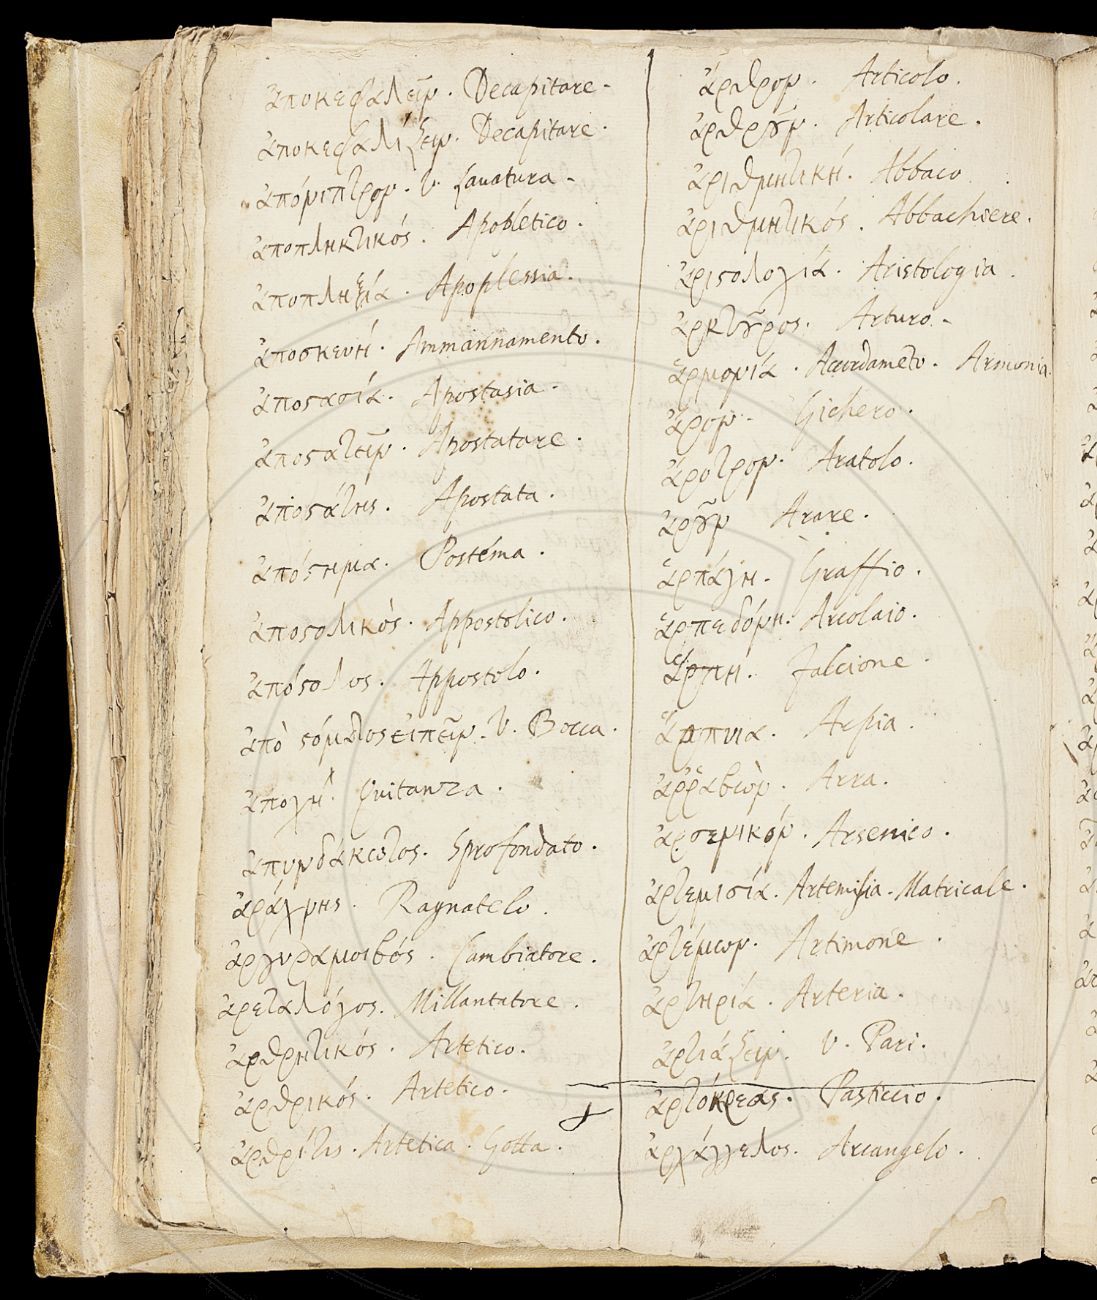 ἀποκεφαλεῖν. Decapitare.
ἀποκεφαλίζειν. Decapitare.
ἀπόνιπτρον. V. Lauatura.
ἀποπληκτικός. Apopletico.
ἀποπληξία. Apoplessia.
ἀποσκευή. Ammannamento.
ἀποστασία. Apostasia.
ἀποστατεῖν. Apostatare.
ἀποστάτης. Apostata.
ἀπόστημα. Postéma.
ἀποστολικὸς. Appostolico.
ἀπόστολος. Appostolo.
ἀπὸ στόματος εἰπεῖν. V. Bocca.
ἀποχή. Quitanza.
ἀπυνδάκωτος. Sprofondato.
ἀράχνης. Ragnatelo.
ἀργυραμοιβός. Cambiatore.
ἀρεταλόγος. Millantatore.
ἀρθρητικός. Artetico.
ἀρθρικός. Artetico.
ἀρθρίτις. Artetica. Gotta.
ἄρθρον. Articolo.
ἀρθροῦν. Articolare.
ἀριθμητική. Abbaco
ἀριθμητικός. Abbachiere.
ἀριστολογία. Aristologia.
ἀρκτοῦρος. Arturo.
ἁρμονία. Acordameto. Armonia.
ἄρον. Gichero.
ἄροτρον. Aratolo.
ἀροῦν Arare.
ἁρπάγη. Graffio.
ἁρπεδόνη. Arcolaio.
ἅρπη. Falcione.
ἅρπυια. Arpia.
ἀῤῥαβὼν. Arra.
ἀρσενικόν. Arsenico.
ἀρτεμισία. Artemisia. Matricale.
ἀρτέμων. Artimone.
ἀρτηρία. Arteria.
ἀρτιάζειν. V. Pari.
ἀρτόκρεας. Pasticcio.
ἀρχάγγελος. Arcangelo.